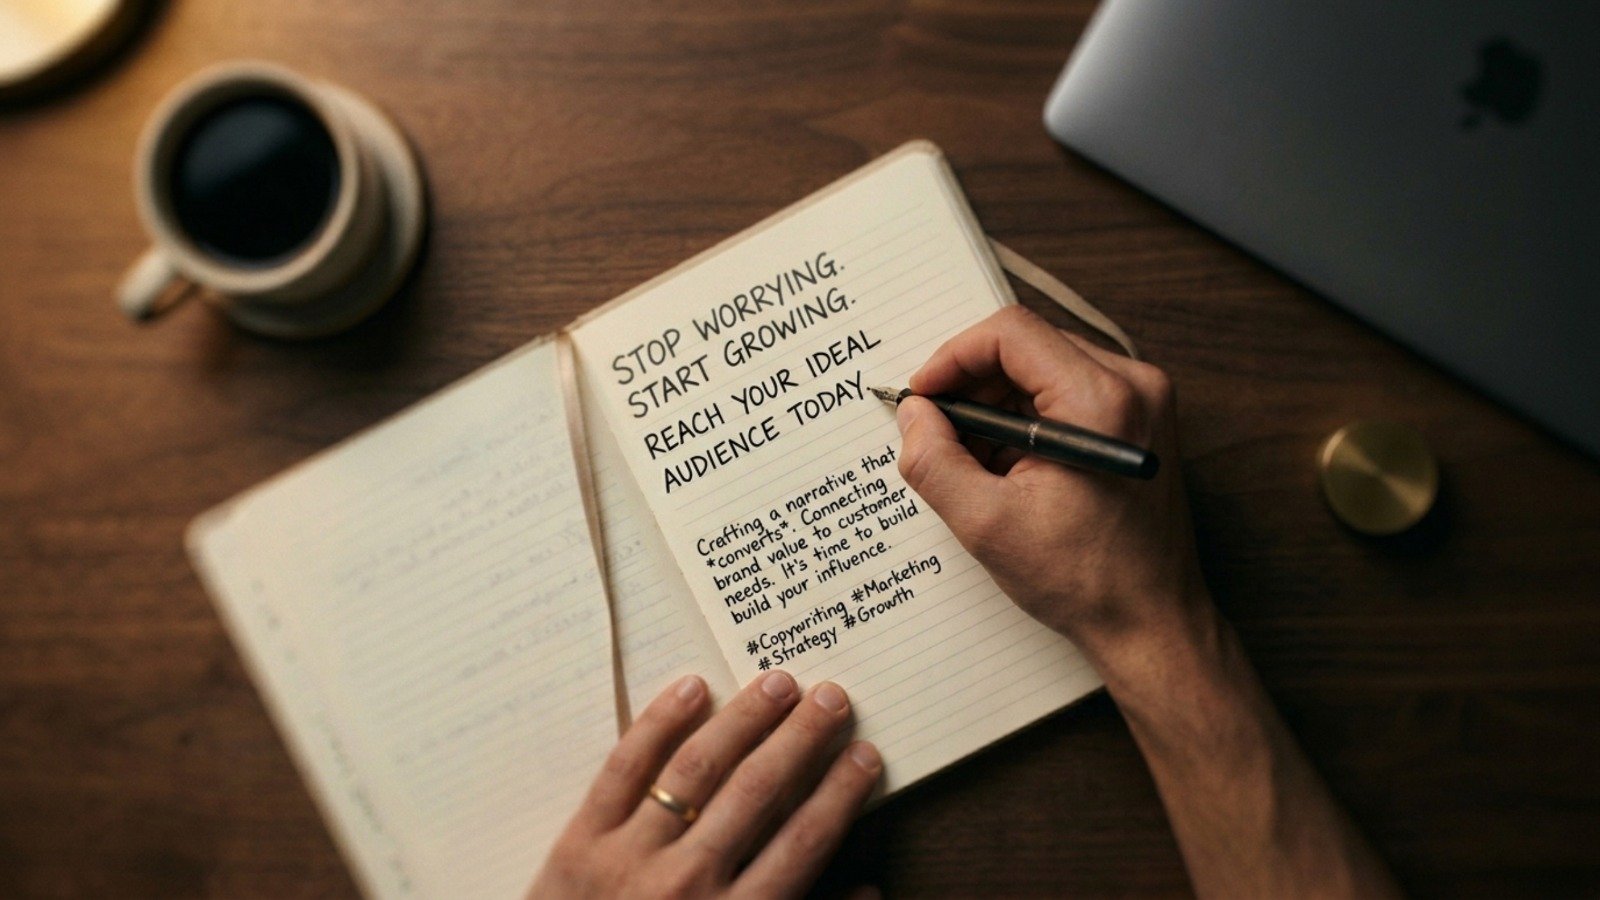 STOP WORRYING.
START GROWING.
REACH YOUR IDEAL
AUDIENCE TODAY.
Crafting a narrative that
*converts*. Connecting
brand value to customer
needs. It's time to build
build your influence.
#Copywriting #Marketing
#Strategy #Growth